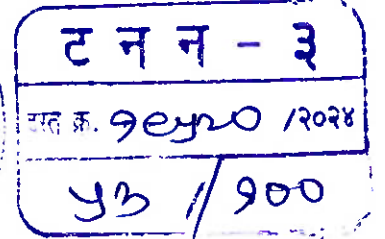 ट न न - ३
दस्त क्र. १९५२० /२०२४
५३ / १००